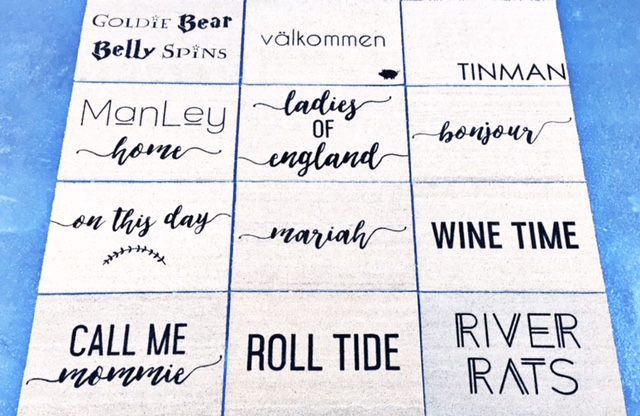 Goldie Bear
Belly Spins
välkommen
TINMAN
ManLey
home
ladies
OF
england
bonjour
on this day
mariah
WINE TIME
CALL ME
mommie
ROLL TIDE
RIVER
RATS